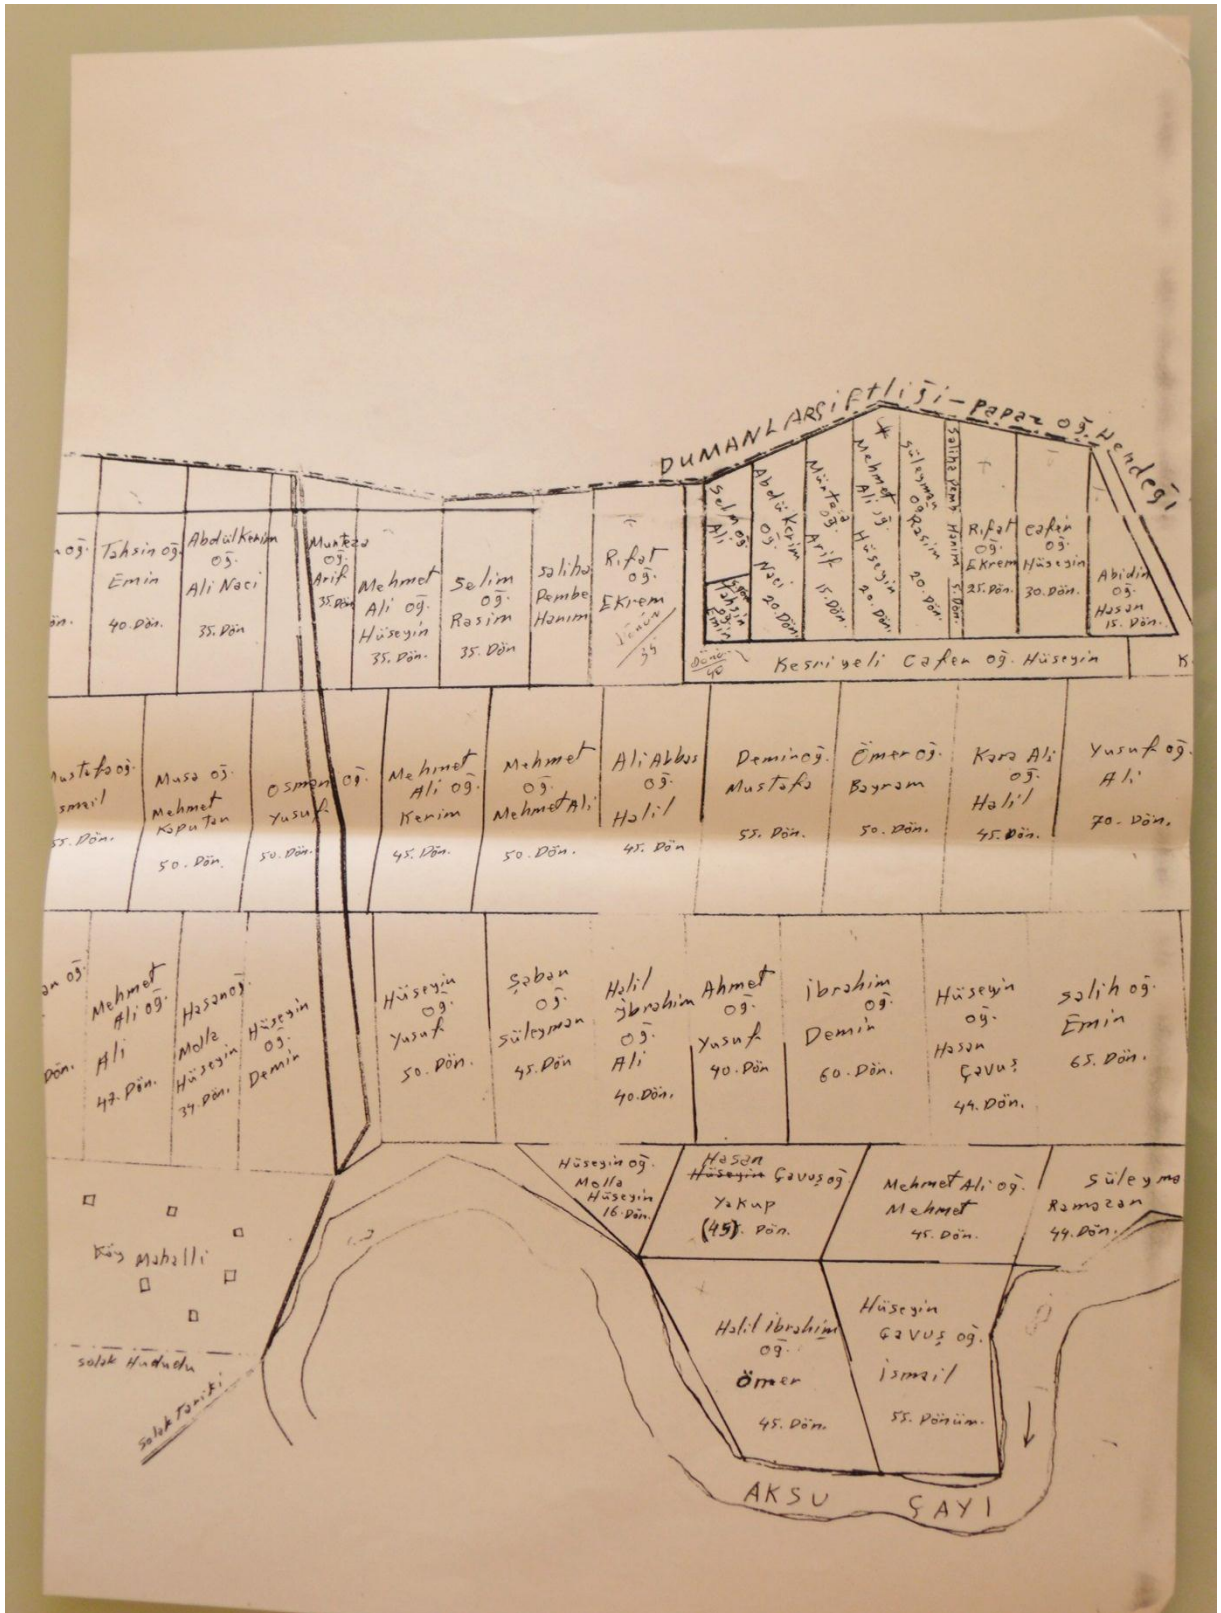 DUMANLARŞİFTLİĞİ-PAPAZ OĞ. Hendeği
oğ.
ön.
Tahsin oğ
Emin
40. Dön.
Abdülkerim
oğ.
Ali Naci
35. Dön
Munteza
oğ.
Arif
35. Dön
Mehmet
Ali oğ.
Hüseyin
35. Dön.
Selim
oğ.
Rasim
35. Dön
Saliha
Pembe
Hanım
Rıfat
oğ.
EKrem
Dönüm
34
Selim oğ
Ali
Tahsin
oğ.
Emin
Abdülkerim
oğ.
Naci
20. Dön.
Müntaza
oğ.
Arif
15. Dön.
Mehmet
Ali oğ.
Hüseyin
20. Dön.
Süleyman
oğ.
Rasim
20. Dön.
Saliha Pemb Hanım 5. Dön.
Rıfat
oğ.
EKrem
25. Dön.
Cafer
oğ.
Hüseyin
30. Dön.
Abidin
oğ.
Hasan
15. Dön.
Dönü
40
Kesriyeli Cafer oğ. Hüseyin
K.
Mustafa oğ.
smail
55. Dön.
Musa oğ.
Mehmet
Kaputan
50. Dön.
Osman oğ.
Yusuf
50. Dön.
Mehmet
Ali oğ.
Kerim
45. Dön.
Mehmet
oğ.
Mehmet Ali
50. Dön.
Ali Abbas
oğ.
Halil
45. Dön
Demir oğ.
Mustafa
55. Dön.
Ömer oğ.
Bayram
50. Dön.
Kara Ali
oğ.
Halil
45. Dön.
Yusuf oğ.
Ali
70. Dön.
an oğ.
Dön.
Mehmet
Ali oğ.
Ali
47. Dön.
Hasan oğ
Molla
Hüseyin
34. Dön.
Hüseyin
oğ.
Demir
Hüseyin
oğ.
Yusuf
50. Dön.
Şaban
oğ.
Süleyman
45. Dön
Halil
İbrahim
oğ.
Ali
40. Dön.
Ahmet
oğ.
Yusuf
40. Dön
İbrahim
oğ.
Demir
60. Dön.
Hüseyin
oğ.
Hasan
Çavuş
44. Dön.
Salih oğ.
Emin
65. Dön.
Hüseyin oğ.
Molla
Hüseyin
16. Dön.
Hasan
Hüseyin Çavuş oğ
Yakup
(45). Dön.
Mehmet Ali oğ.
Mehmet
45. Dön.
Süleyma
Ramazan
44. Dön.
Köy Mahalli
Solak Hududu
Solak Tariki
Halil İbrahim
oğ.
Ömer
45. Dön.
Hüseyin
Çavuş oğ.
İsmail
55. Dönüm.
AKSU ÇAYI